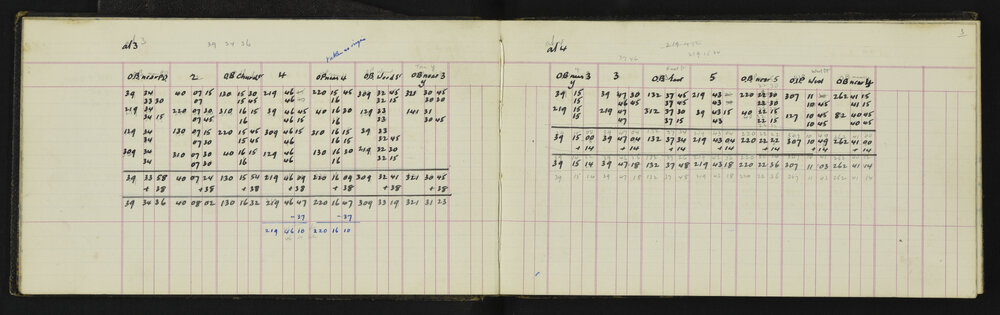 at 3
39 34 36
2 4
39 34 40 07 15 130 15 30 219 46 220 15 45 309 32 45 321 30 45
33 30 07 15 45 46 16 32 15 30 30
219 34 220 07 30 310 16 15 39 46 40 16 30 129 33 141 31
34 15 07 45 16 46 15 16 33 30 45
129 34 130 07 15 220 15 45 309 46 15 310 16 15 39 33
34 07 30 15 45 46 16 32 45
309 34 310 07 30 40 16 15 129 46 130 16 30 219 32 30
34 07 30 16 46 16 32 15
39 33 58 40 07 24 130 15 54 219 46 09 220 16 09 309 32 41 321 30 45
+38 +38 +38 +38 +38 +38 +38
39 34 36 40 08 02 130 16 32 219 46 47 220 16 47 309 33 19 321 31 23
-37 -37
219 46 10 220 16 10
3
at 4
OB near 3 3 5 OB near 5 OB near 4
39 15 39 47 30 132 37 45 219 43 220 22 30 307 11 262 41 15
15 46 45 37 45 43 22 30 10 45 41 15
219 15 219 47 312 37 30 39 43 15 40 22 15 127 10 45 82 40 45
15 47 37 15 43 22 15 10 45 40 45
39 15 00 39 47 04 132 37 34 219 43 04 220 22 22 307 10 49 262 41 00
+14 +14 +14 +14 +14 +14 +14
39 15 14 39 47 18 132 37 48 219 43 18 220 22 36 307 11 03 262 41 14
39 15 14 39 47 18 132 37 48 219 43 18 220 22 36 307 11 03 262 41 14